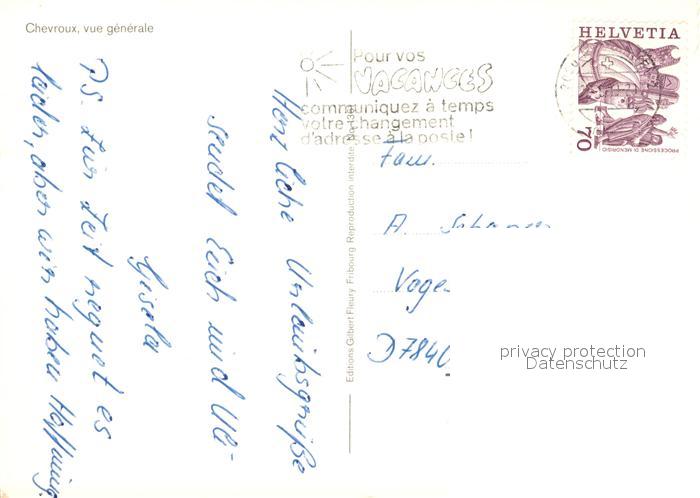 Chevroux, vue générale
Pour vos
VACANCES
communiquez à temps
votre changement
d'adresse à la poste!
HELVETIA
70
PROCESSIONE DI MENDRISIO
Herzliche Urlaubsgrüße
sendet Euch und Uli-
Gisela
PS. Zur Zeit regnet es
leider, aber wir haben Hoffnung
Editions Gilbert Fleury Fribourg Reproduction interdite
Fam.
A.
D 7840
privacy protection
Datenschutz